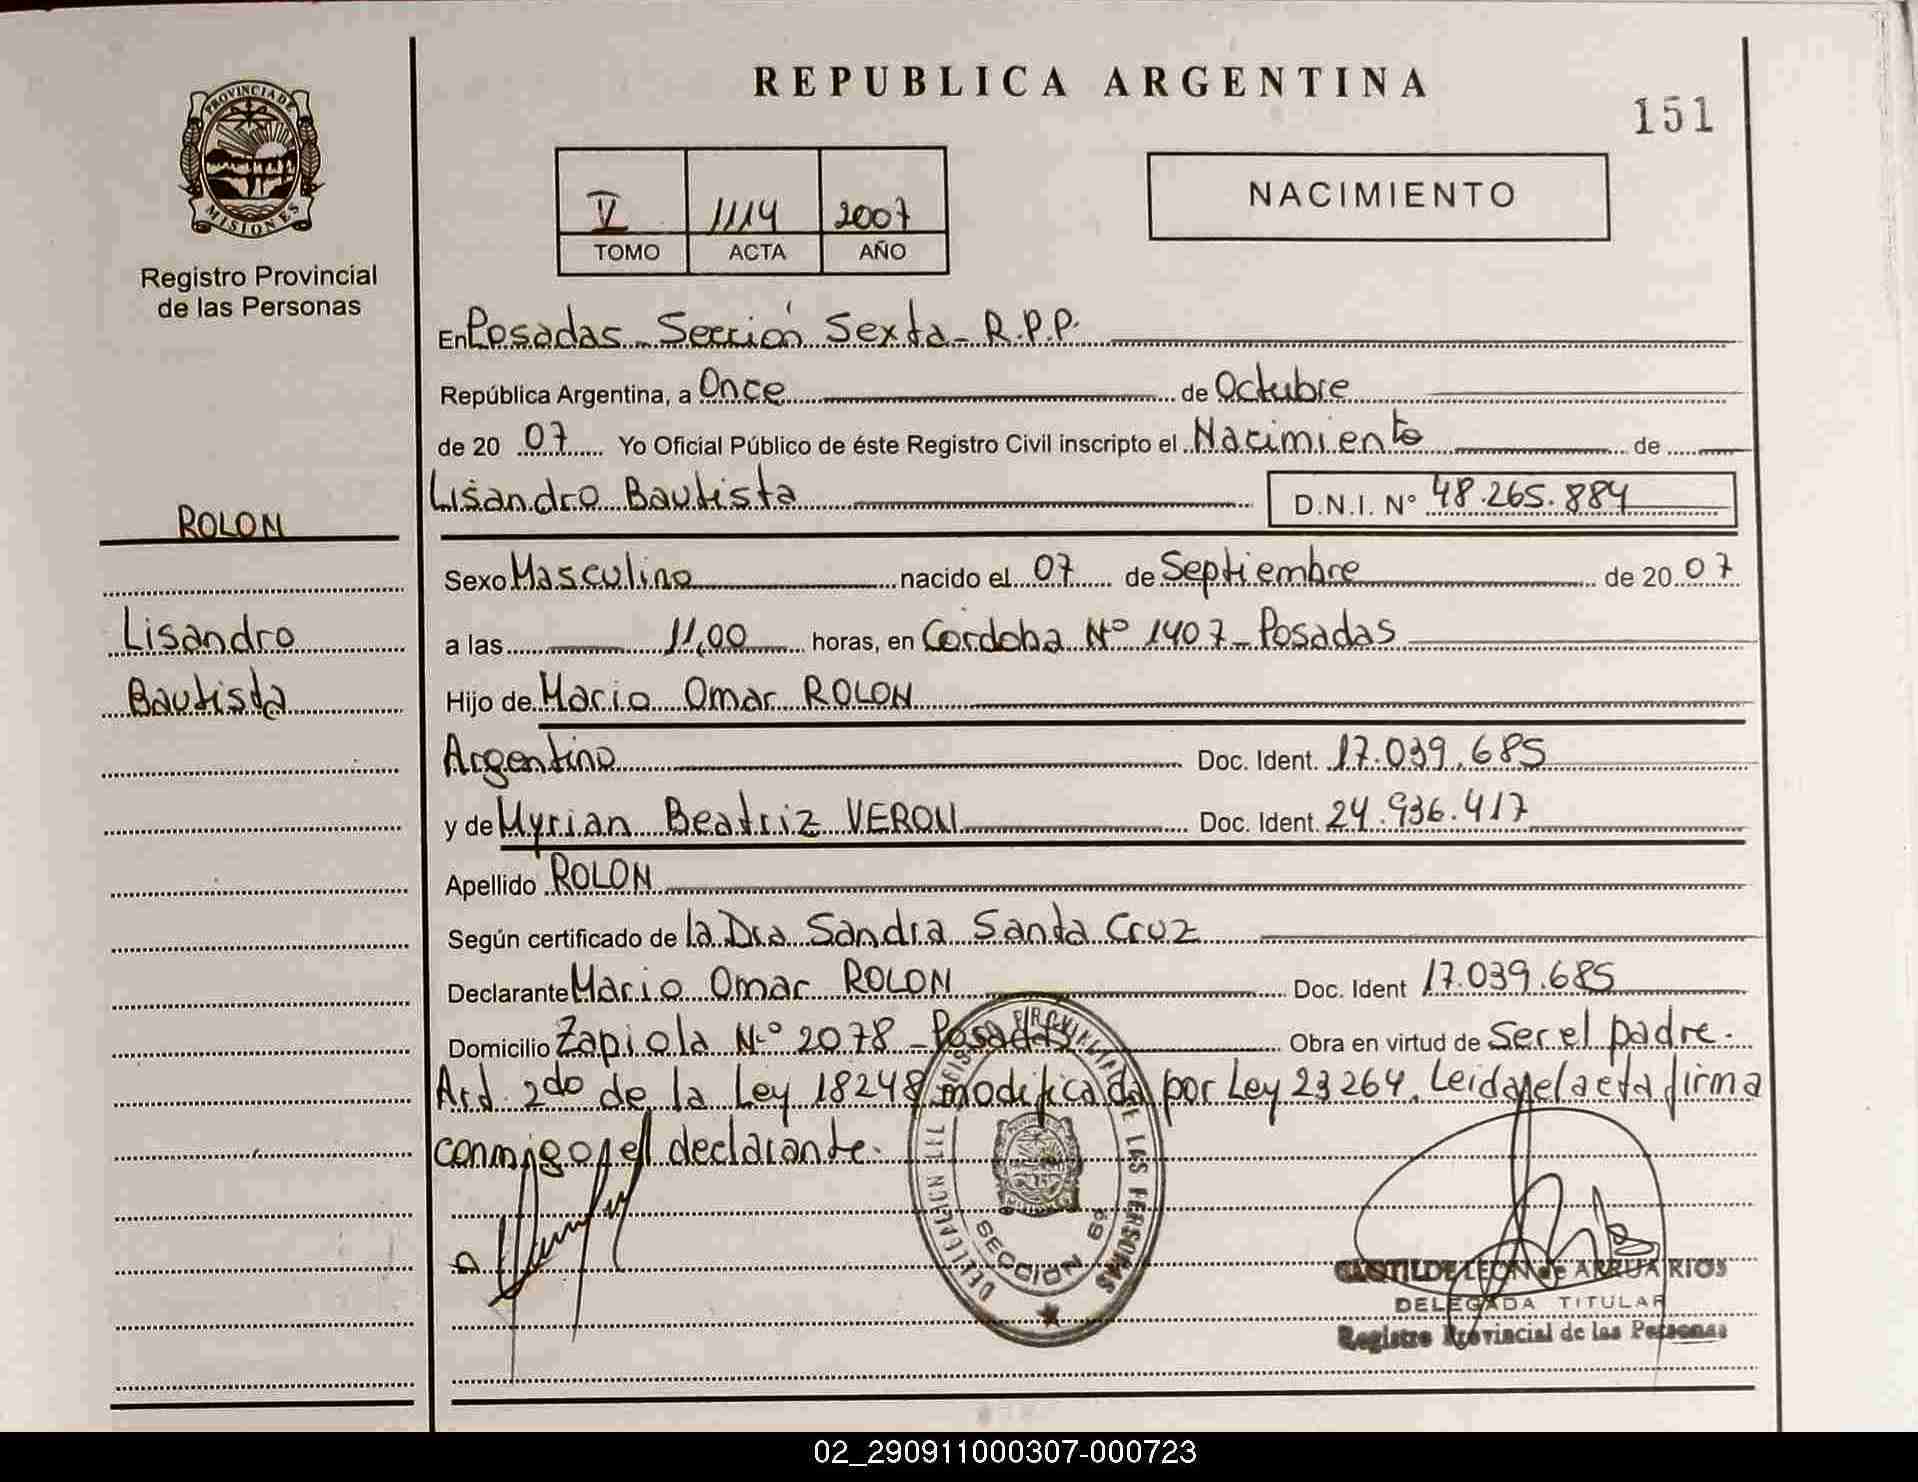 REPUBLICA ARGENTINA
151
PROVINCIA DE
MISIONES
Registro Provincial
de las Personas
V 1114 2007
TOMO ACTA AÑO
NACIMIENTO
En Posadas - Sección Sexta - R.P.P.
República Argentina, a Once de Octubre
de 20 07 Yo Oficial Público de éste Registro Civil inscripto el Nacimiento de
Lisandro Bautista D.N.I. N° 48.265.884
ROLON
Lisandro
Bautista
Sexo Masculino nacido el 07 de Septiembre de 20 07
a las 11,00 horas, en Cordoba N° 1407 - Posadas
Hijo de Mario Omar ROLON
Argentino Doc. Ident. 17.039.685
y de Myrian Beatriz VERON Doc. Ident. 24.936.417
Apellido ROLON
Según certificado de la Dra Sandra Santa Cruz
Declarante Mario Omar ROLON Doc. Ident 17.039.685
Domicilio Zapiola N° 2078 - Posadas Obra en virtud de Ser el padre.
Art. 2do de la Ley 18248 modificada por Ley 23264. Leida el acta firma
conmigo el declarante.
REGISTRO PROVINCIAL DE LAS PERSONAS
SECCION 6ª
DELEGADA TITULAR
Registro Provincial de las Personas
02_290911000307-000723